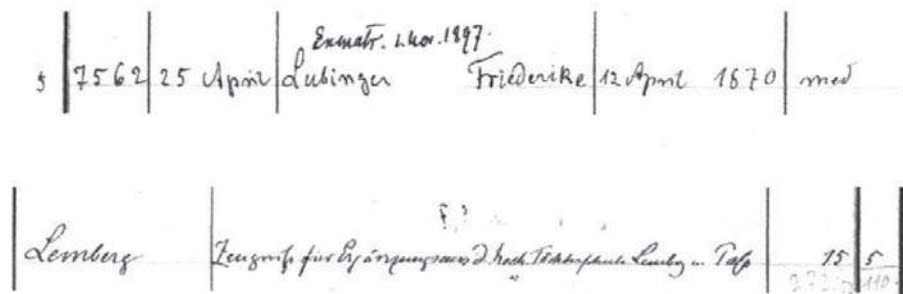 Exmatr. 1. Nov. 1897.
5 7562 25 April Lubinger Friederike 12 April 1870 med
Lemberg Zeugniß für d. hoch. Töchterschule Lemberg u. Paß 15 5